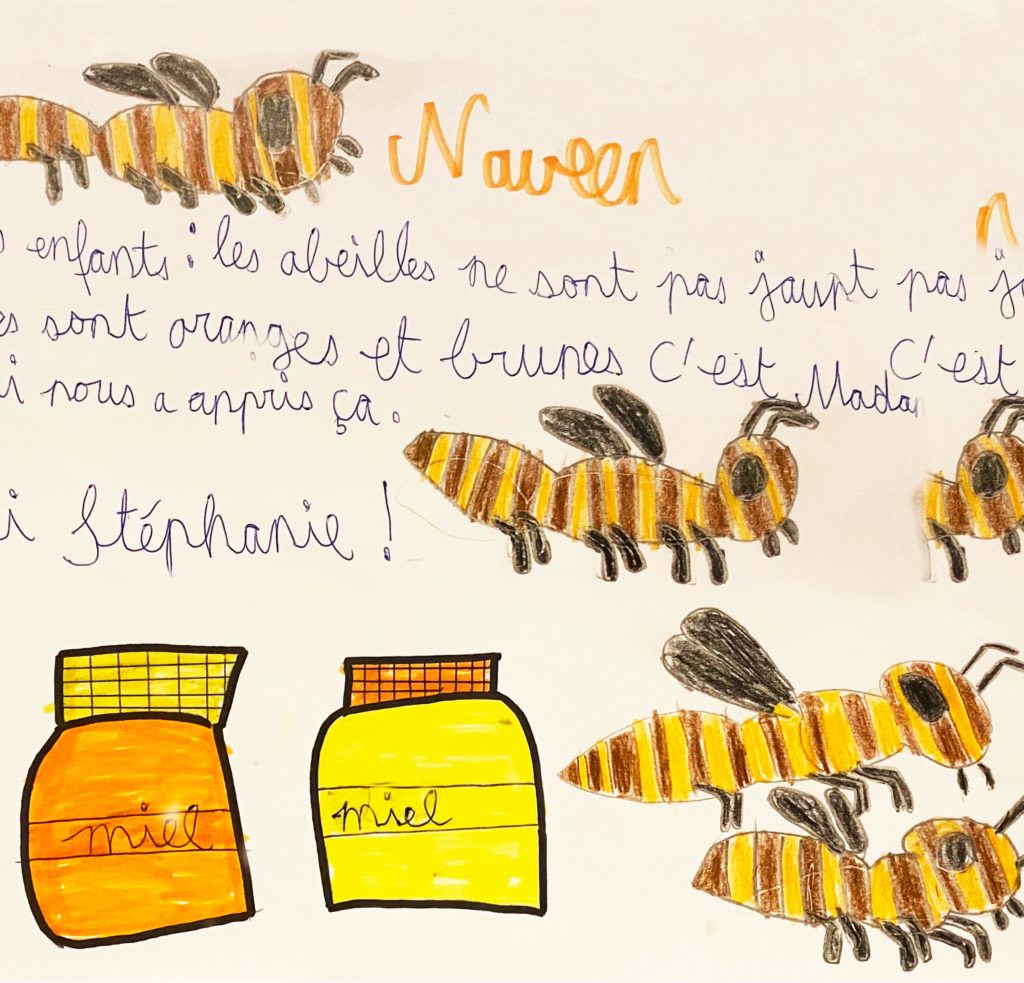 Naveen
n
s enfants : les abeilles ne sont pas jaunt pas j
es sont oranges et brunes C'est C'est
i nous a appris ça. Mada
i Stéphanie !
miel
miel